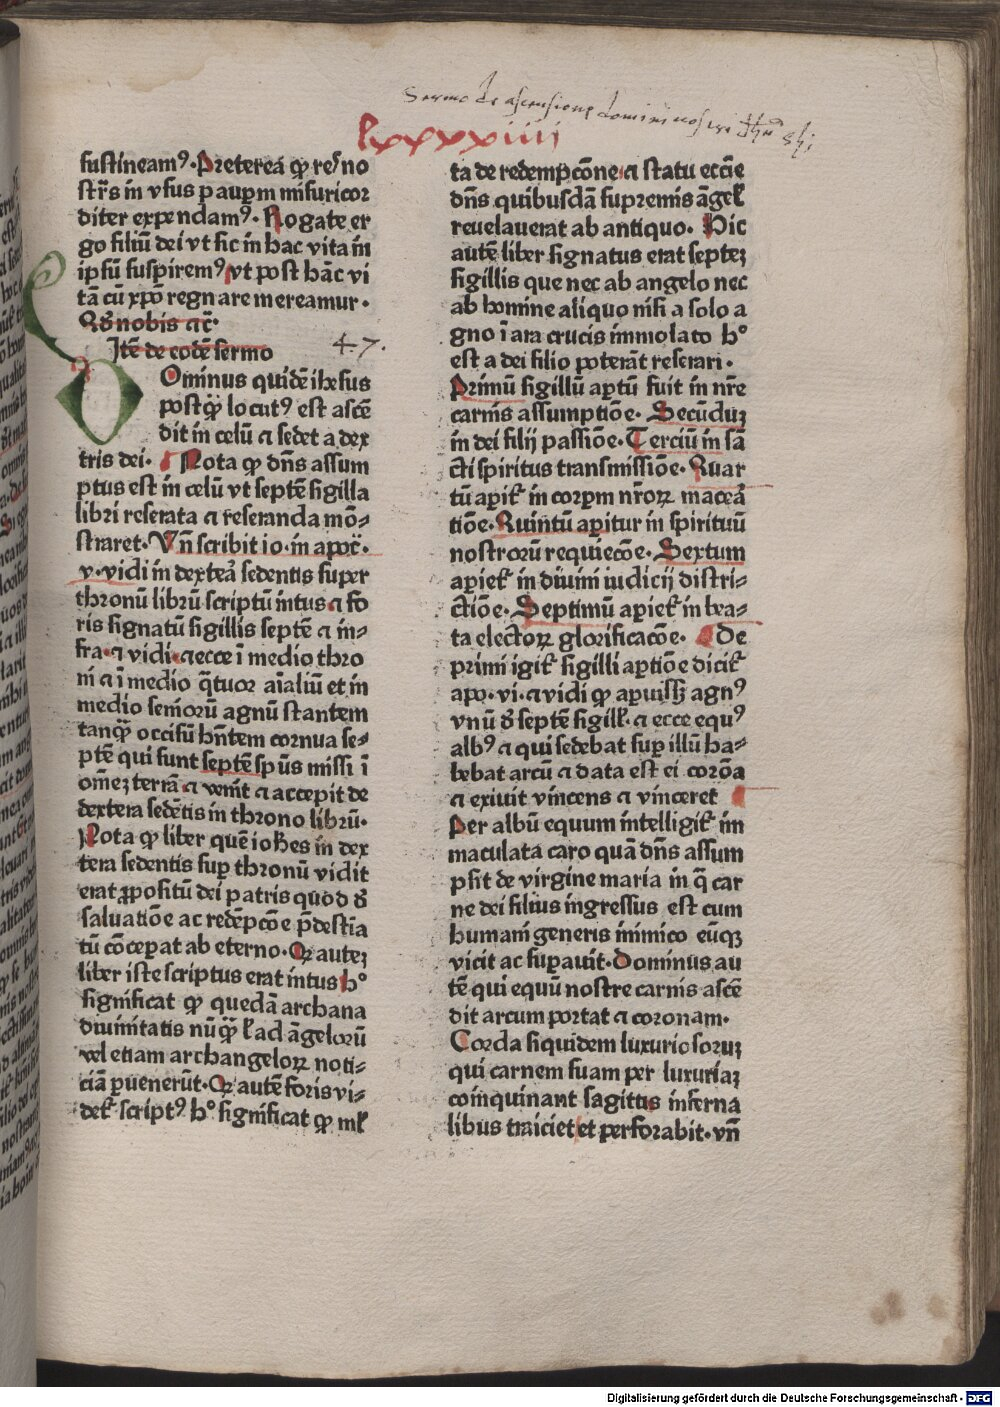 Sermo de ascensione domini nostri
lxxxxiiii
sustineamꝰ. Preterea ꝙ res no
str̄s in vsus pauꝑum misericor
diter expendamꝰ. Rogate er
go filiū dei vt sic in hac vita in
ipsū suspiremꝰ vt post hāc vi
tā cū xp̄o regnare mereamur.
Itē de eodē sermo
47.
Dominus quidē ihesus
postq̄ȝ locutꝰ est ascē
dit in celū ⁊ sedet a dex
tris dei. Nota ꝙ dn̄s assum
ptus est in celū vt septē sigilla
libri reserata ⁊ reseranda mō-
straret. Vn̄ scribit io. in apoc̄.
v. vidi in dexteā sedentis super
thronū librū scriptū intus ⁊ fo
ris signatū sigillis septē ⁊ in-
fra. ⁊ vidi. ⁊ ecce ī medio thro
ni ⁊ ī medio q̄tuor aīaliū et in
medio seniorū agnū stantem
tanq̄ȝ occisū hn̄tem cornua se-
ptē qui sunt septē sp̄ūs missi ī
om̄eȝ terrā. ⁊ venit ⁊ accepit de
dextera sedētis in throno librū.
Nota ꝙ liber quē ioh̄es in dex
tera sedentis suꝑ thronū vidit
erat ꝓpositū dei patris quod d̄
saluatiōe ac redēpcōe p̄destīa
tū cōceꝑat ab eterno. Qꝛ auteȝ
liber iste scriptus erat intus hº
significat ꝙ quedā archana
diuinitatis nūq̄ȝ ł ad āgelorū
vel etiam archangeloꝝ noti-
ciā ꝑuenerūt. Qꝛ autē foris vi-
det̄ scriptꝰ hº significat ꝙ ml̄
ta de redempcōne ⁊ statu eccīe
dn̄s quibusdā supremis āgel̄
reuelauerat ab antiquo. Hic
autē liber signatus erat septeȝ
sigillis que nec ab angelo nec
ab homine aliquo nisi a solo a
gno ī ara crucis immolato hº
est a dei filio poterāt reserari.
Primū sigillū aꝑtū fuit in nr̄e
carnis assumptiōe. Secūduȝ
in dei filij passiōe. Terciū in sā
cti spiritus transmissiōe. Quar
tū aꝑit̄ in corꝑm nr̄oꝝ maceā
tiōe. Quintū aꝑitur in spirituū
nostrorū requiecōe. Sextum
aꝑiet̄ in diuini iudicij distri-
ctiōe. Septimū aꝑiet̄ in bea-
ta electoꝝ glorificacōe. De
primi igit̄ sigilli aꝑtiōe dicit̄
apo. vi. ⁊ vidi ꝙ aꝑuissȝ agnꝰ
vnū d̄ septē sigill̄. ⁊ ecce equꝰ
albꝰ ⁊ qui sedebat suꝑ illū ha-
bebat arcū ⁊ data est ei corōa
⁊ exiuit vincens ⁊ vinceret
Per albū equum intelligit̄ im
maculata caro quā dn̄s assum
psit de virgine maria in q̄ car
ne dei filius ingressus est cum
humani generis inimico eūqꝫ
vicit ac suꝑauit. Dominus au
tē qui equū nostre carnis ascē
dit arcum portat ⁊ coronam.
Corda siquidem luxuriosoruȝ
qui carnem suam per luxuriaȝ
coinquinant sagittis inferna
libus traiciet et perforabit. vn̄
Digitalisierung gefördert durch die Deutsche Forschungsgemeinschaft - DFG